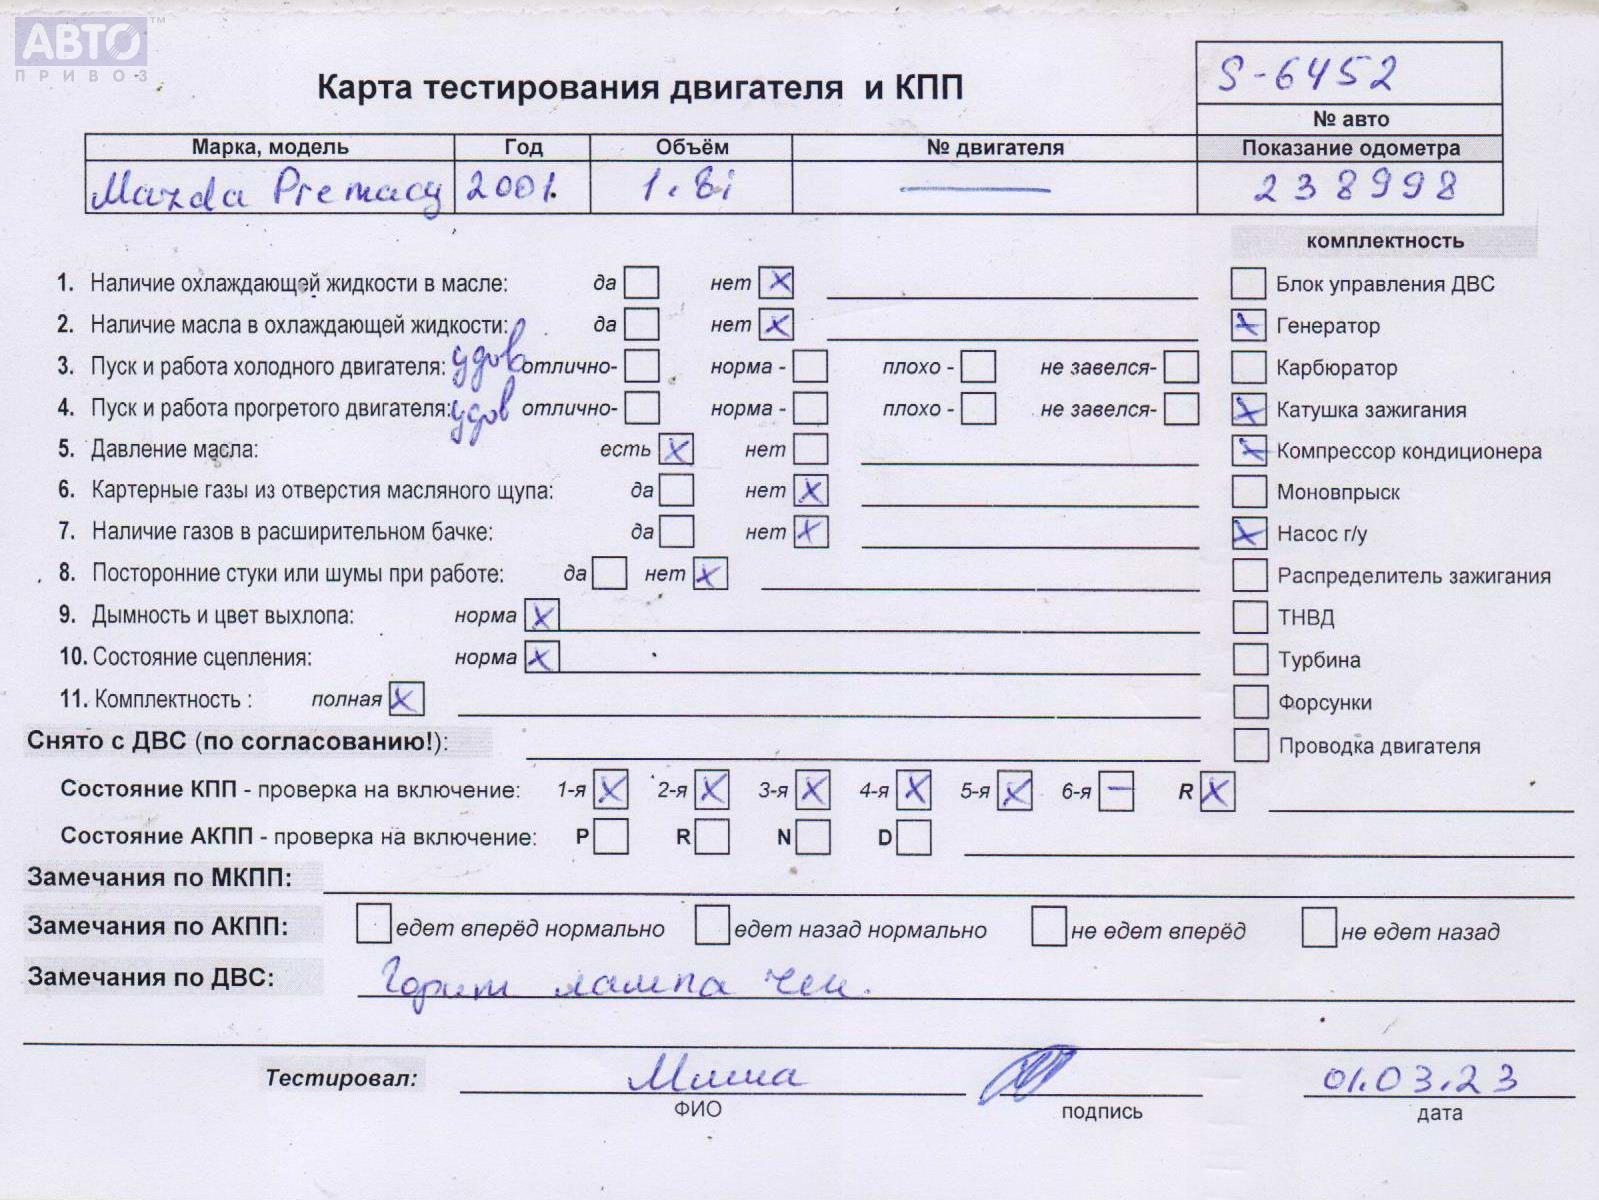 АВТО™
ПРИВОЗ
S-6452
Карта тестирования двигателя и КПП
№ авто
Марка, модель Год Объём № двигателя Показание одометра
Mazda Premacy 2001. 1.8i — 238998
комплектность
1. Наличие охлаждающей жидкости в масле: да нет X Блок управления ДВС
2. Наличие масла в охлаждающей жидкости: да нет X X Генератор
3. Пуск и работа холодного двигателя: удов отлично- норма - плохо - не завелся- Карбюратор
4. Пуск и работа прогретого двигателя: удов отлично- норма - плохо - не завелся- X Катушка зажигания
5. Давление масла: есть X нет X Компрессор кондиционера
6. Картерные газы из отверстия масляного щупа: да нет X Моновпрыск
7. Наличие газов в расширительном бачке: да нет X X Насос г/у
8. Посторонние стуки или шумы при работе: да нет X Распределитель зажигания
9. Дымность и цвет выхлопа: норма X ТНВД
10. Состояние сцепления: норма X Турбина
11. Комплектность : полная X Форсунки
Снято с ДВС (по согласованию!): Проводка двигателя
Состояние КПП - проверка на включение: 1-я X 2-я X 3-я X 4-я X 5-я X 6-я — R X
Состояние АКПП - проверка на включение: P R N D
Замечания по МКПП:
Замечания по АКПП: едет вперёд нормально едет назад нормально не едет вперёд не едет назад
Замечания по ДВС: Горит лампа чек.
Тестировал: Миша 01.03.23
ФИО подпись дата